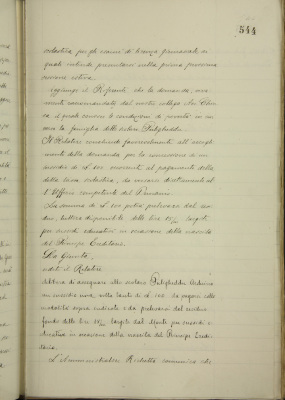 544
scolastica per gli esami di licenza ginnasiale ai
quali intende presentarsi nella prima prossima
sessione estiva.
Aggiunge il Referente che la domanda,
mente raccomandata dal nostro collega
, il quale conosce le condizioni di povertà in cui
la famiglia dello scolaro Pulighedda.
Il Relatore favorevolmente all'accogli
mento della domanda per la concessione di un
sussidio di L. 100 occorrenti al pagamento della
detta tassa scolastica, da versarsi direttamente al
l'Ufficio competente del Ginnasio.
La somma di L. 100 potrà prelevarsi dal
tuttora disponibile delle lire largite
per sussidi educativi in occasione della nascita
del Principe Ereditario.
La Giunta,
udito il Relatore
delibera di assegnare allo scolaro Pulighedda
un sussidio nella somma di L. 100 da pagarsi colle
modalità sopra indicate e da prelevarsi dal residuo
fondo delle lire largite dal Monte per sussidi
educativi in occasione della nascita del Principe Eredi
tario.
L'Amministratore comunica che